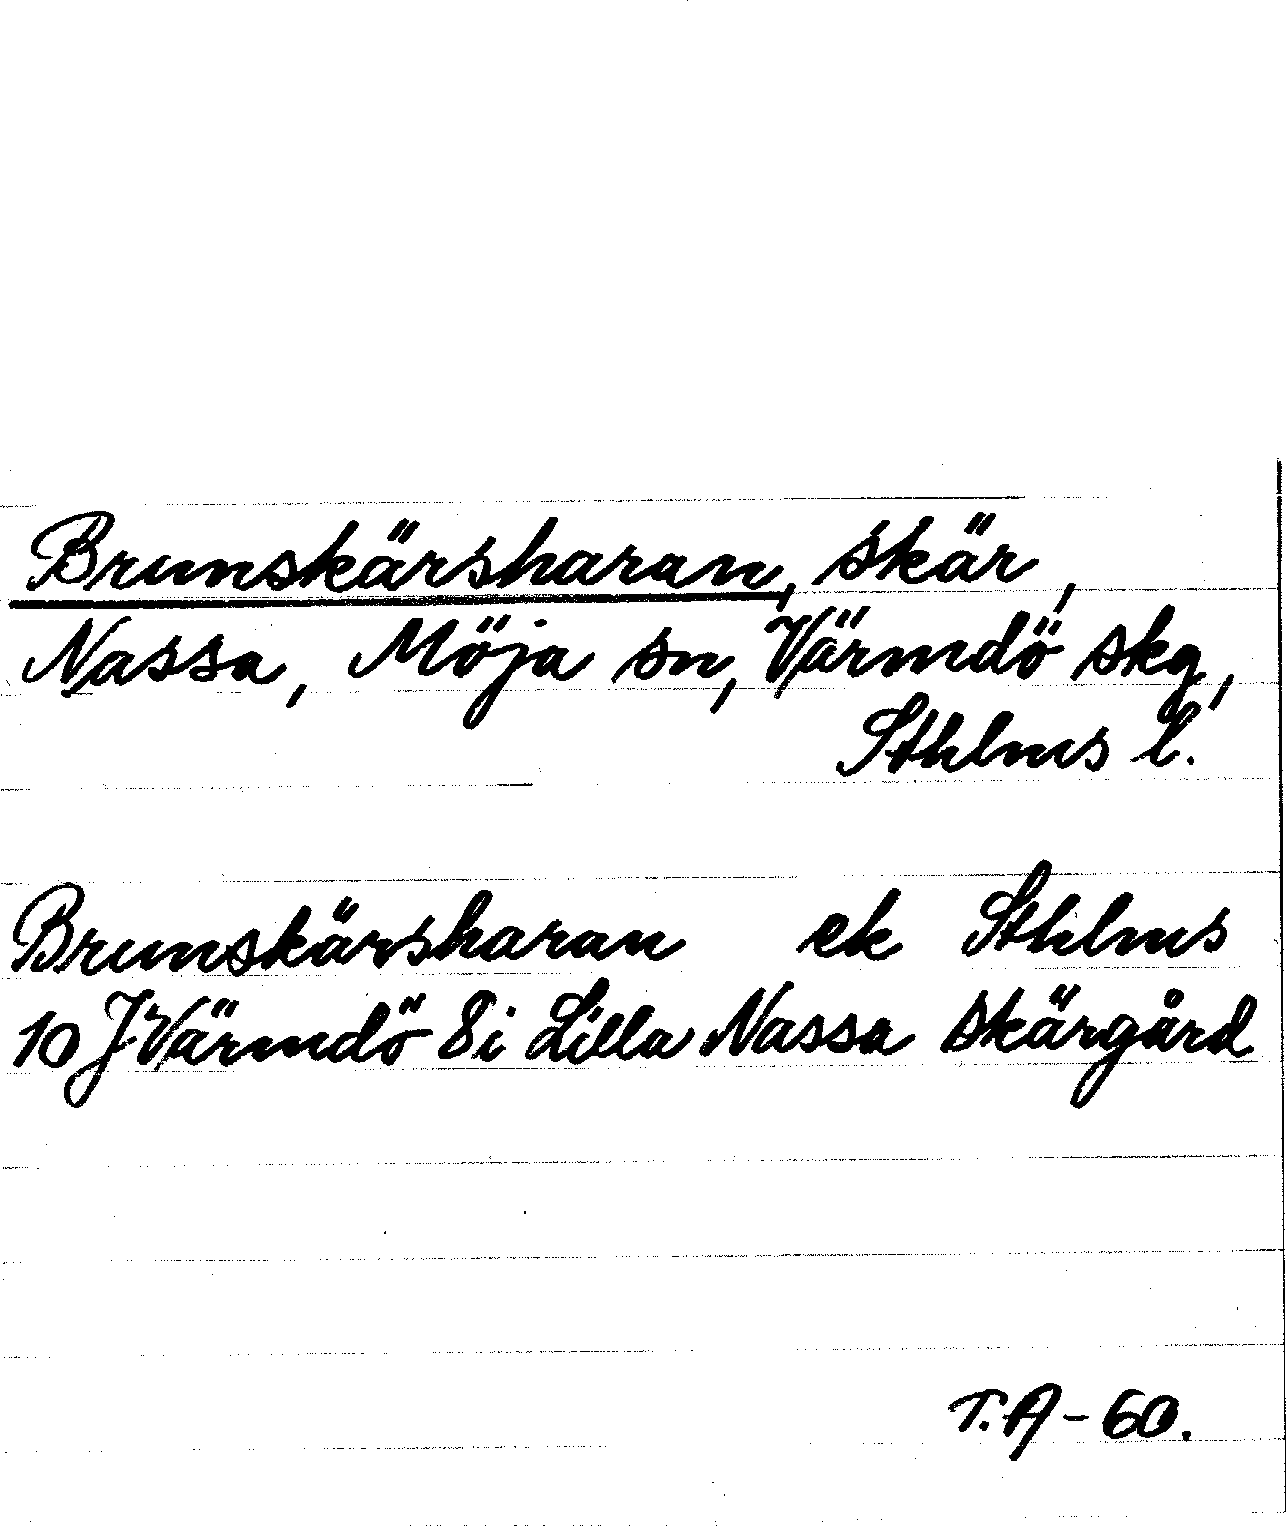 Brunskärsharan, skär,
Nassa, Möja sn, Värmdö skg,
Sthlms l.
Brunskärsharan ek Sthlms
10 J Värmdö 8i Lilla Nassa skärgård
T.A - 60.